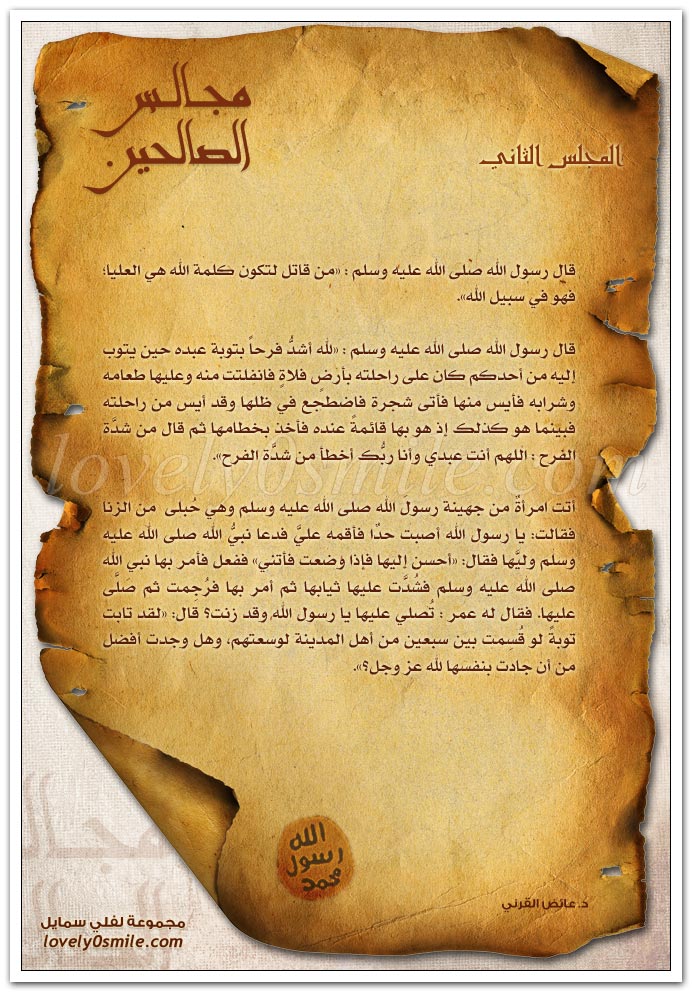 مجالس
الصالحين
المجلس الثاني
قال رسول الله صلى الله عليه وسلم : «من قاتل لتكون كلمة الله هي العليا؛
فهو في سبيل الله».
قال رسول الله صلى الله عليه وسلم : «لله أشدُّ فرحاً بتوبة عبده حين يتوب
إليه من أحدكم كان على راحلته بأرضِ فلاةٍ فانفلتت منه وعليها طعامه
وشرابه فأيس منها فأتى شجرة فاضطجع في ظلها وقد أيس من راحلته
فبينما هو كذلك إذ هو بها قائمةً عنده فأخذ بخطامها ثم قال من شدَّة
الفرح : اللهم أنت عبدي وأنا ربُّك أخطأ من شدَّة الفرح».
أتت امرأةٌ من جهينة رسول الله صلى الله عليه وسلم وهي حُبلى من الزنا
فقالت: يا رسول الله أصبت حدّا فأقمه عليَّ فدعا نبيُّ الله صلى الله عليه
وسلم وليَّها فقال: «أحسن إليها فإذا وضعت فأتني» ففعل فأمر بها نبي الله
صلى الله عليه وسلم فشُدَّت عليها ثيابها ثم أمر بها فرُجمت ثم صلَّى
عليها. فقال له عمر : تُصلي عليها يا رسول الله وقد زنت؟ قال: «لقد تابت
توبةً لو قُسِمت بين سبعين من أهل المدينة لوسعتهم، وهل وجدت أفضل
من أن جادت بنفسها لله عز وجل؟».
lovely0smile.com
الله
رسول
محمد
د.عائض القرني
مجموعة لفلي سمايل
lovely0smile.com